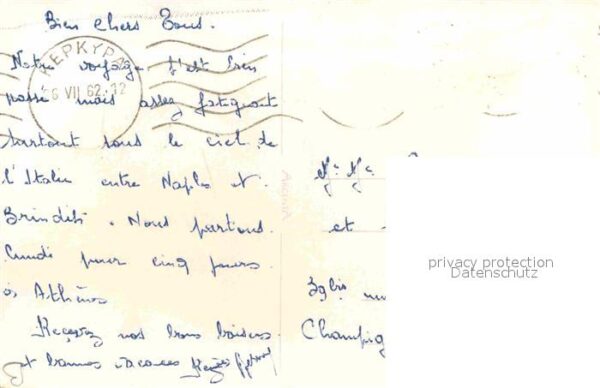 Bien Chers Tous.
ΚΕΡΚΥΡΑ
6 VII 62.12
Notre voyage s'est bien
passé mais assez fatiguant
surtout sous le ciel de
l'Italie entre Naples et
Brindisi. Nous partons
lundi pour cinq jours
à Athènes
Recevez nos bons baisers
et bonnes vacances
Mr Mme
et
39bis
Champig
privacy protection
Datenschutz